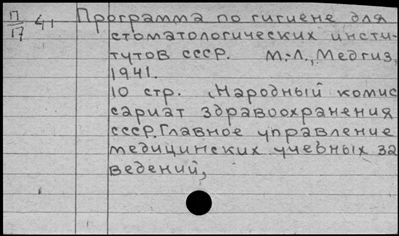 П/17 41 Программа по гигиене для
стоматологических инсти-
тутов СССР. М.-Л., Медгиз,
1941.
10 стр. Народный комис
сариат здравоохранения
СССР. Главное управление
медицинских учебных за
ведений,